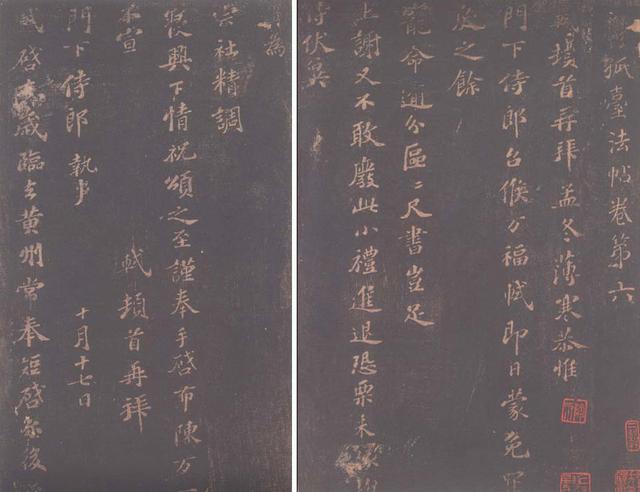 孤臺法帖卷第六
軾頓首再拜孟冬薄寒恭惟
門下侍郎台候万福軾即日蒙免罪
戾之餘
寵命逾分區〻尺書豈足
上謝又不敢廢此小禮進退恐栗未
侍伏冀
為
宗社精調
寢興下情祝頌之至謹奉手啓布陳万一
不宣 軾頓首再拜
門下侍郎 執事 十月十七日
軾啓去歲臨去黃州常奉短啓爾後